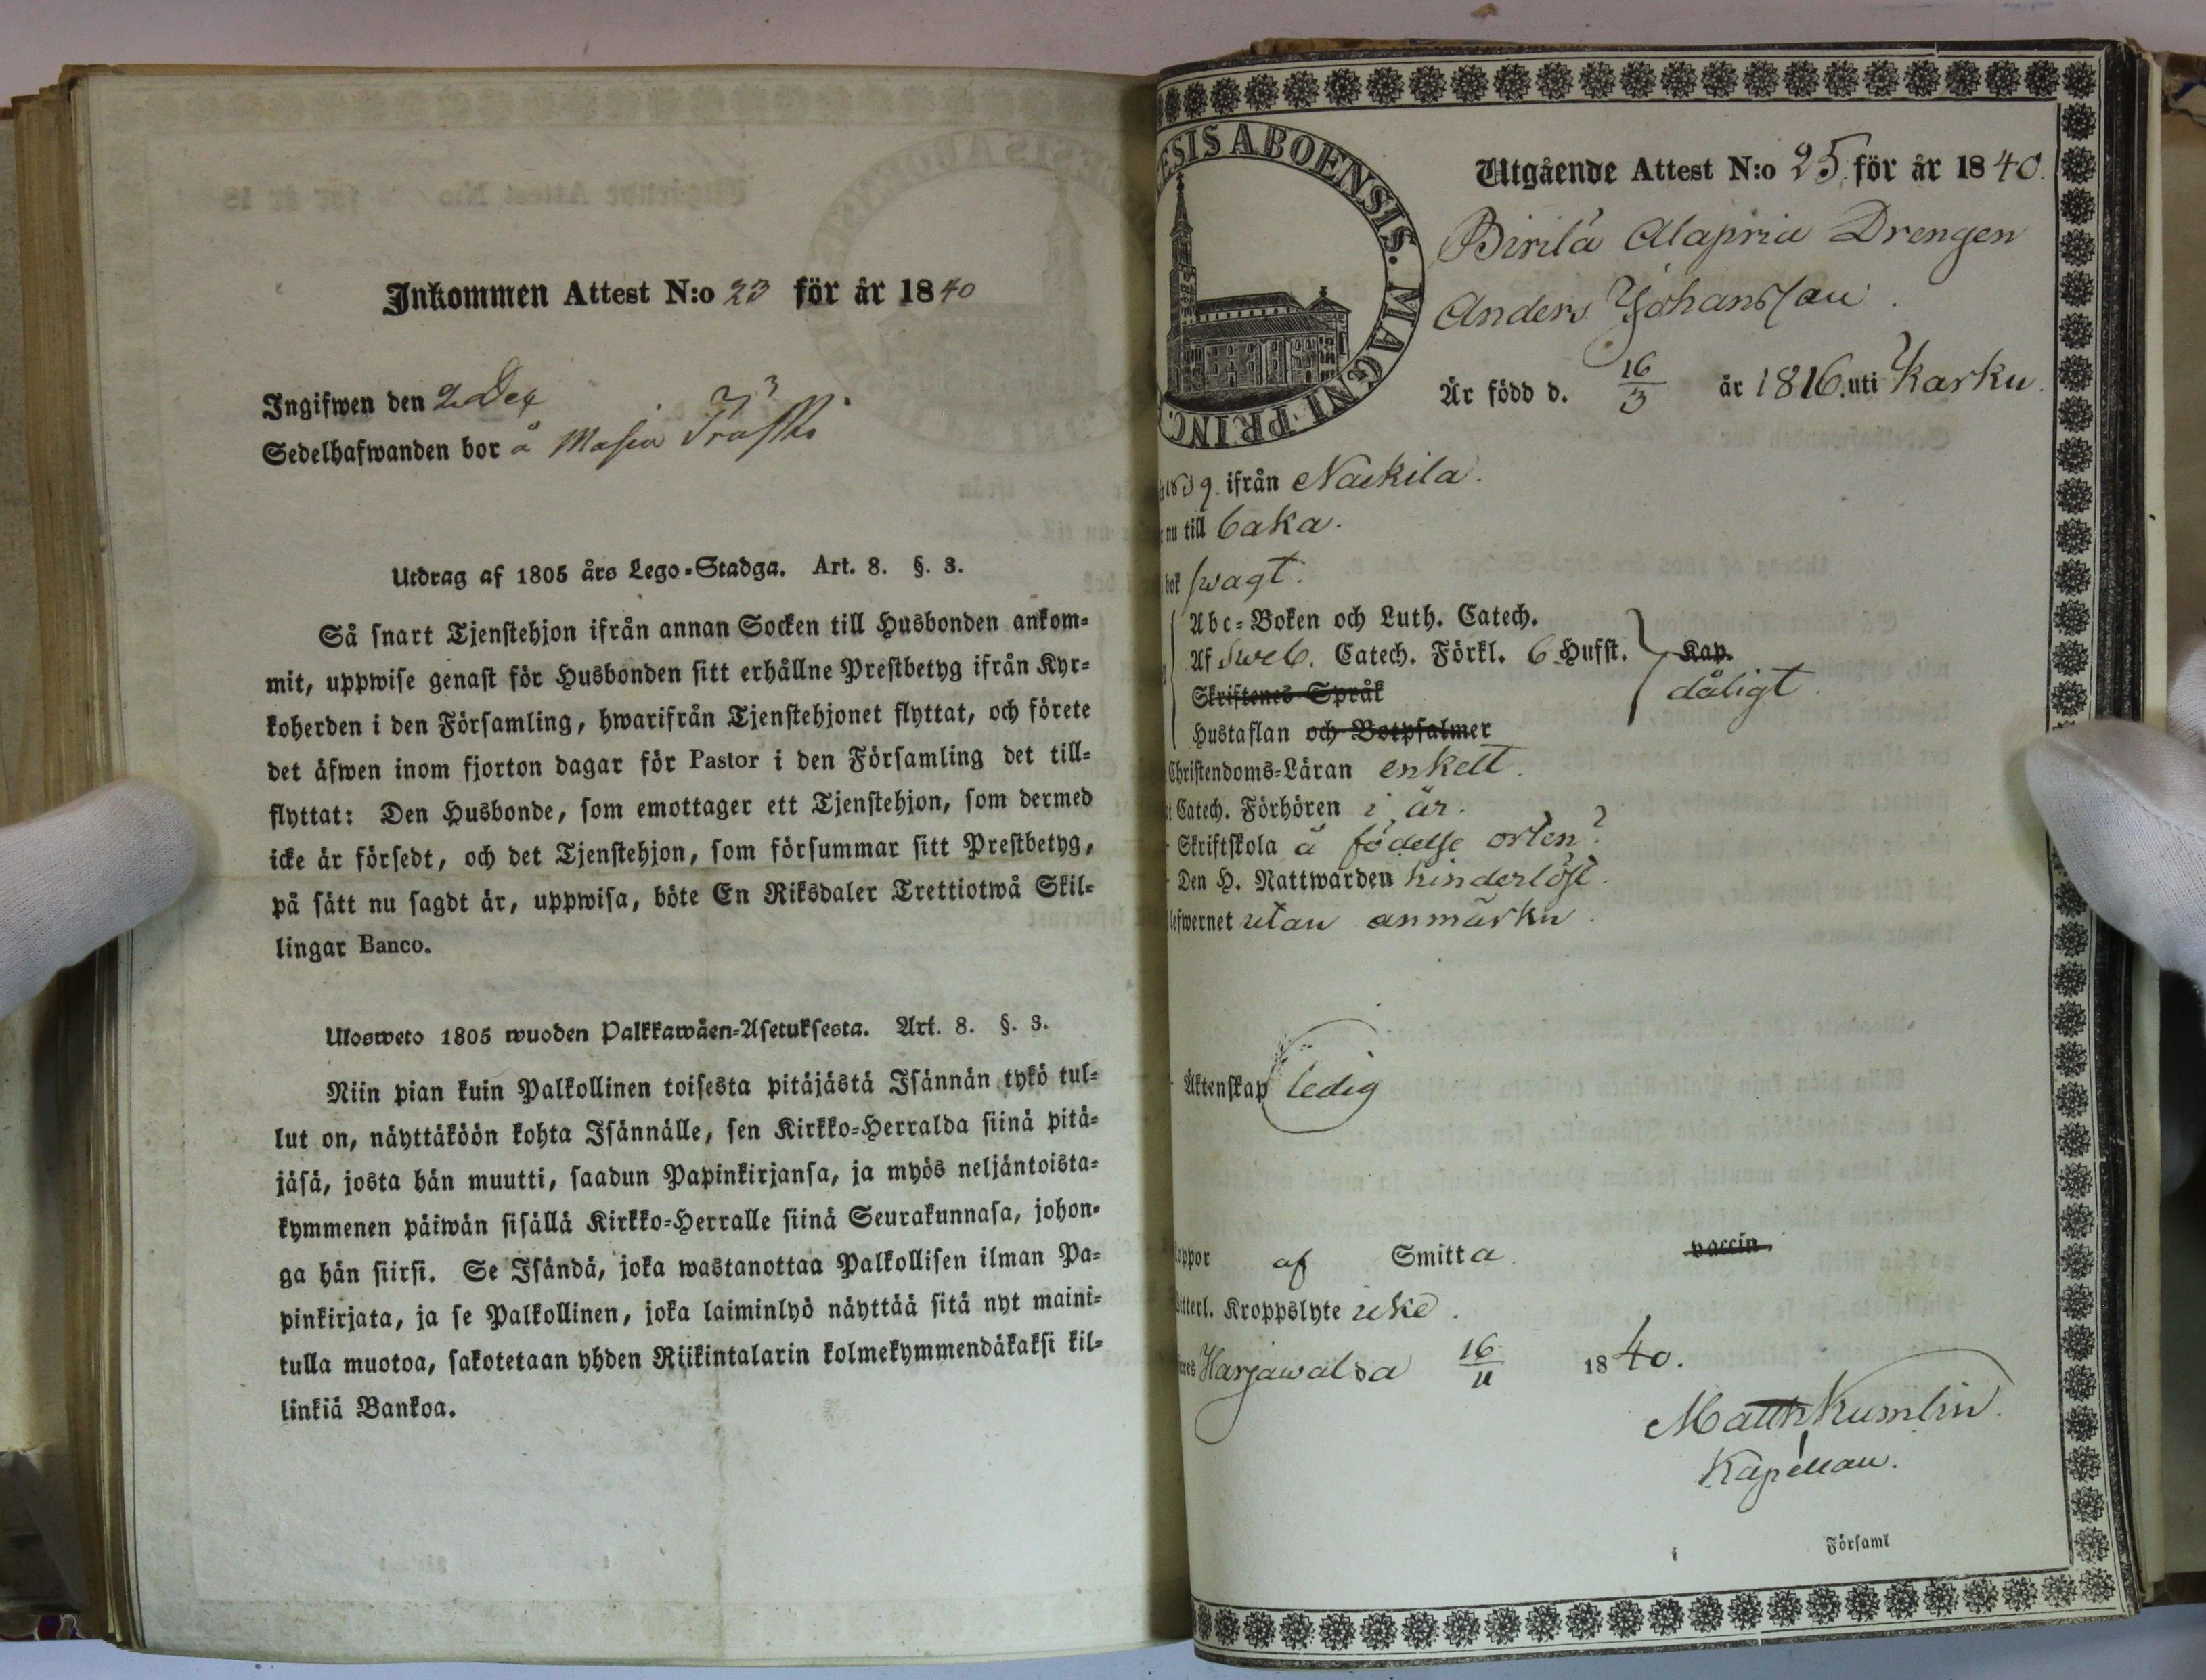 Inkommen Attest N:o 23 för år 1840
Ingifwen den 2 Dec
Sedelhafwanden bor å Masia
Utdrag af 1805 års Lego-Stadga. Art. 8. §. 3.
Så snart Tjenstehjon ifrån annan Socken till Husbonden ankom-
mit, uppwise genast för Husbonden sitt erhållne Prestbetyg ifrån Kyr-
koherden i den Församling, hwarifrån Tjenstehjonet flyttat, och förete
det äfwen inom fjorton dagar för Pastor i den Församling det till-
flyttat: Den Husbonde, som emottager ett Tjenstehjon, som dermed
icke är försedt, och det Tjenstehjon, som försummar sitt Prestbetyg,
på sätt nu sagdt är, uppwisa, böte En Riksdaler Trettiotwå Skil-
lingar Banco.
Ulosweto 1805 wuoden Palkkawäen-Asetuksesta. Art. 8. §. 3.
Niin pian kuin Palkollinen toisesta pitäjästä Isännän tykö tul-
lut on, näyttäköön kohta Isännälle, sen Kirkko-Herralda siinä pitä-
jäsä, josta hän muutti, saadun Papinkirjansa, ja myös neljäntoista-
kymmenen päiwän sisällä Kirkko-Herralle siinä Seurakunnasa, johon-
ga hän siirsi. Se Isändä, joka wastanottaa Palkollisen ilman Pa-
pinkirjata, ja se Palkollinen, joka laiminlyö näyttää sitä nyt maini-
tulla muotoa, sakotetaan yhden Riikintalarin kolmekymmendäkaksi kil-
linkiä Bankoa.
ESIS ABOENSIS. MAGNI PRINC.
Utgående Attest N:o 25 för år 1840.
Birilä Alapria Drengen
Anders Johansson.
Är född d. 16/3 år 1816. uti Karku.
1839. ifrån Nackila.
nu till baka.
bok swagt.
Abc-Boken och Luth. Catech.
Af Sweb. Catech. Förkl. 6 Hufst. Kap.
Skriftenes Språk dåligt.
Hustaflan och Botpsalmer
Christendoms-Läran enkelt.
Catech. Förhören i år.
Skriftskola å födelse orten?
Den H. Nattwarden hinderlöst.
lefwernet utan anmärkn.
Äktenskap ledig
oppor af Smitta vaccin.
itterl. Kroppslyte icke.
Harjawalda 16/11 1840.
Matth Kumlin.
Kapellan.
i Församl